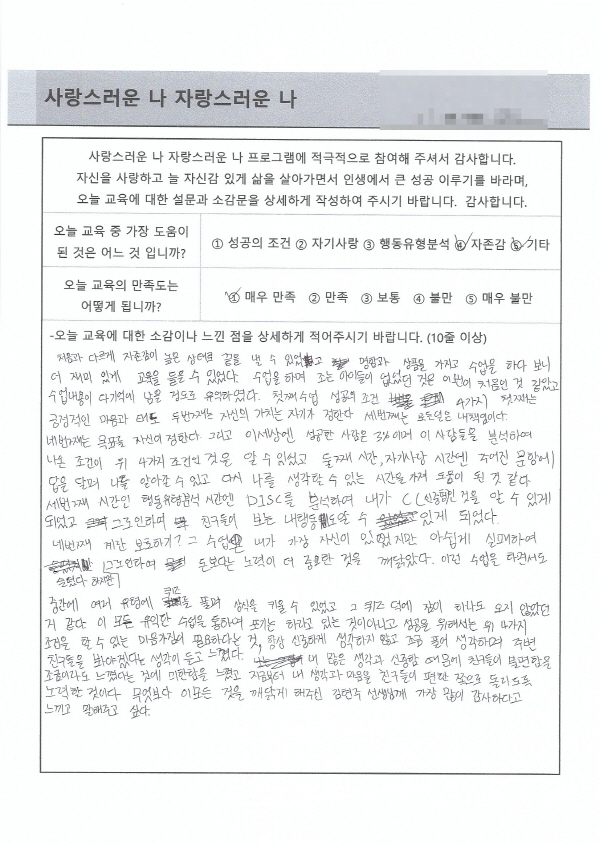 사랑스러운 나 자랑스러운 나
사랑스러운 나 자랑스러운 나 프로그램에 적극적으로 참여해 주셔서 감사합니다.
자신을 사랑하고 늘 자신감 있게 삶을 살아가면서 인생에서 큰 성공 이루기를 바라며,
오늘 교육에 대한 설문과 소감문을 상세하게 작성하여 주시기 바랍니다. 감사합니다.
오늘 교육 중 가장 도움이
된 것은 어느 것 입니까?
① 성공의 조건 ② 자기사랑 ③ 행동유형분석 ④ 자존감 ⑤ 기타
오늘 교육의 만족도는
어떻게 됩니까?
① 매우 만족 ② 만족 ③ 보통 ④ 불만 ⑤ 매우 불만
-오늘 교육에 대한 소감이나 느낀 점을 상세하게 적어주시기 바랍니다. (10줄 이상)
처음과 다르게 자존감이 높은 상태로 끝을 낼 수 있었고 명함과 상품을 가지고 수업을 하다 보니
더 재미 있게 교육을 들을 수 있었다. 수업을 하며 조는 아이들이 없었던 것은 이번이 처음인 것 같았고
수업내용이 다 기억에 남을 정도로 유익하였다. 첫째수업 성공의 조건 4가지 첫째는
긍정적인 마음과 태도 두번째는 자신의 가치는 자기가 정한다 세번째는 모든일은 내책임이다.
네번째는 목표로 자신이 정한다. 그리고 이세상에 성공한 사람은 3%이며 이 사람들을 분석하여
나온 조건이 위 4가지 조건인 것을 알 수 있었고 둘째 시간, 자기사랑 시간엔 주어진 문항에
답을 달며 나를 알아갈 수 있고 다시 나를 생각할 수 있는 시간을 가져 도움이 된 것 같다.
세번째 시간인 행동유형분석 시간엔 DISC를 분석하여 내가 C(신중형)인 것을 알 수 있게
되었고 그로인하여 친구들이 보는 내 행동도 알 수 있게 되었다.
네번째 계란 보호하기? 그 수업은 내가 가장 자신이 있었지만 아쉽게 실패하여
슬펐다 하지만 그로인하여 돈보다는 노력이 더 중요한 것을 깨닫았다. 이런 수업을 하면서도
중간에 여러 유형에 퀴즈를 풀며 상식을 키울 수 있었고 그 퀴즈 덕에 잠이 하나도 오지 않았던
거 같다 이 모든 유익한 수업을 통하여 포기는 하라고 있는 것이아니고 성공을 위해서는 위 4가지
조건을 할 수 있는 마음가짐이 필요하다는 것, 항상 신중하게 생각하지 않고 조금 풀어 생각하며 주변
친구들을 봐야겠다는 생각이 들고 느꼈다. 내 많은 생각과 신중함 때문에 친구들이 불편함을
조금이라도 느꼈다는 것에 미안함을 느꼈고 지금부터 내 생각과 마음을 친구들이 편한 쪽으로 돌리도록
노력할 것이다 무엇보다 이모든 것을 깨닫게 해주신 김현주 선생님께 가장 많이 감사하다고
느끼고 말해주고 싶다.